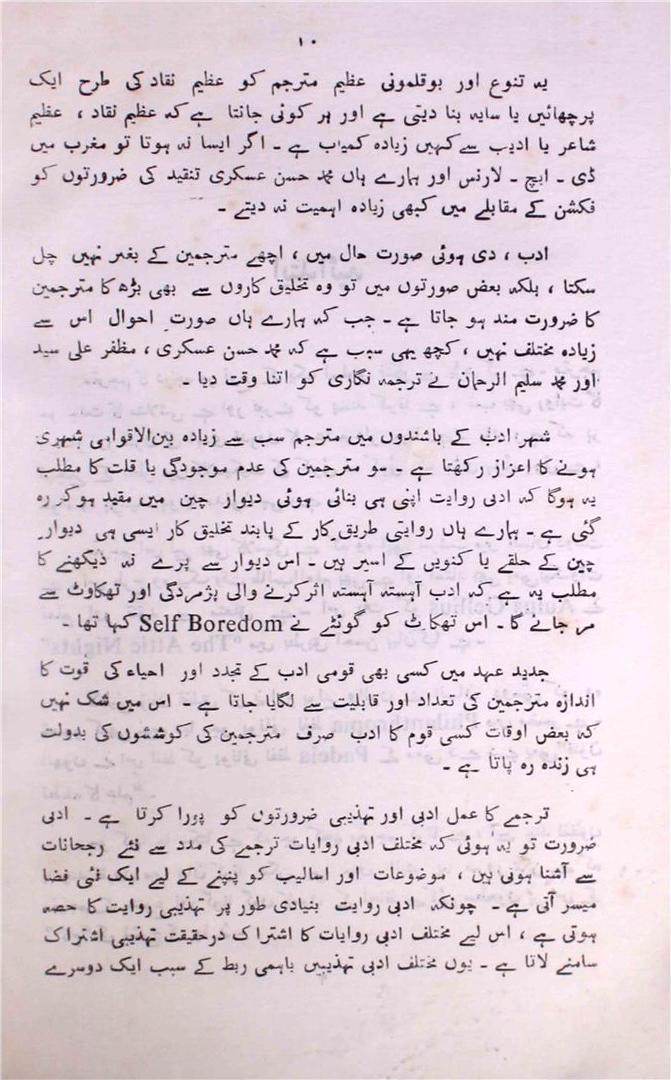 ۱۰
یہ تنوع اور بوقلمونی عظیم مترجم کو عظیم نقاد کی طرح ایک
پرچھائیں یا سایہ بنا دیتی ہے اور ہر کوئی جانتا ہے کہ عظیم نقاد ، عظیم
شاعر یا ادیب سے کہیں زیادہ کمیاب ہے ۔ اگر ایسا نہ ہوتا تو مغرب میں
ڈی ۔ ایچ ۔ لارنس اور ہمارے ہاں محمد حسن عسکری تنقید کی ضرورتوں کو
فکشن کے مقابلے میں کبھی زیادہ اہمیت نہ دیتے ۔
ادب ، دی ہوئی صورت حال میں ، اچھے مترجمین کے بغیر نہیں چل
سکتا ، بلکہ بعض صورتوں میں تو وہ تخلیق کاروں سے بھی بڑھ کا مترجمین
کا ضرورت مند ہو جاتا ہے ۔ جب کہ ہمارے ہاں صورت احوال اس سے
زیادہ مختلف نہیں ، کچھ یہی سبب ہے کہ محمد حسن عسکری ، مظفر علی سید
اور محمد سلیم الرحمان نے ترجمہ نگاری کو اتنا وقت دیا ۔
شہر ادب کے باشندوں میں مترجم سب سے زیادہ بین‌الاقوامی شہری
ہونے کا اعزاز رکھتا ہے ۔ سو مترجمین کی عدم موجودگی یا قلت کا مطلب
یہ ہوگا کہ ادبی روایت اپنی ہی بنائی ہوئی دیوار چین میں مقید ہو کر رہ
گئی ہے ۔ ہمارے ہاں روایتی طریق کار کے پابند تخلیق کار ایسی ہی دیوار
چین کے حلقے یا کنویں کے اسیر ہیں ۔ اس دیوار سے پرے نہ دیکھنے کا
مطلب یہ ہے کہ ادب آہستہ آہستہ اثر کرنے والی پژمردگی اور تھکاوٹ سے
مر جائے گا ۔ اس تھکاٹ کو گوئٹے نے Self Boredom کہا تھا ۔
جدید عہد میں کسی بھی قومی ادب کے تجدد اور احیاء کی قوت کا
اندازہ مترجمین کی تعداد اور قابلیت سے لگایا جاتا ہے ۔ اس میں شک نہیں
کہ بعض اوقات کسی قوم کا ادب صرف مترجمین کی کوششوں کی بدولت
ہی زندہ رہ پاتا ہے ۔
ترجمے کا عمل ادبی اور تہذیبی ضرورتوں کو پورا کرتا ہے ۔ ادبی
ضرورت تو یہ ہوئی کہ مختلف ادبی روایات ترجمے کی مدد سے نئے رجحانات
سے آشنا ہوتی ہیں ، موضوعات اور اسالیب کو پنپنے کے لیے ایک نئی فضا
میسر آتی ہے ۔ چونکہ ادبی روایت بنیادی طور پر تہذیبی روایت کا حصہ
ہوتی ہے ، اس لیے مختلف ادبی روایات کا اشتراک درحقیقت تہذیبی اشتراک
سامنے لاتا ہے ۔ یوں مختلف ادبی تہذیبیں باہمی ربط کے سبب ایک دوسرے